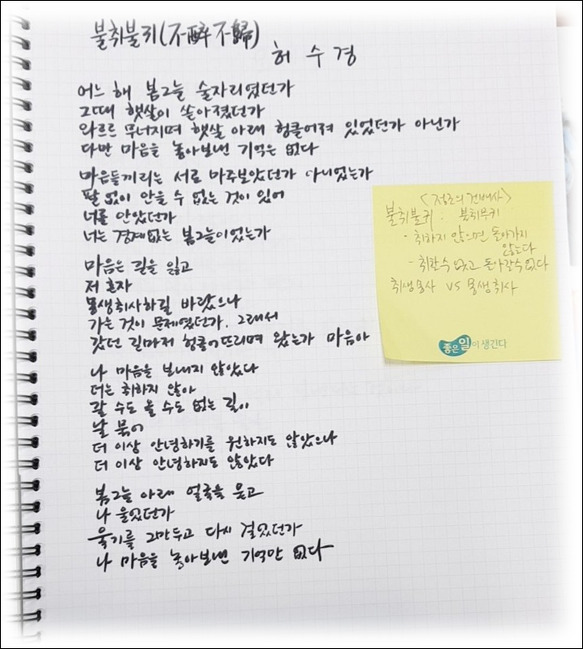 불취불귀(不醉不歸)
허수경
어느 해 봄그늘 술자리였던가
그때 햇살이 쏟아졌던가
와르르 무너지며 햇살 아래 헝클어져 있었던가 아닌가
다만 마음을 놓아보낸 기억은 없다
마음들끼리는 서로 마주보았던가 아니었는가
팔 없이 안을 수 없는 것이 있어
너를 안았던가
너는 경계없는 봄그늘이었는가
마음은 길을 잃고
저 혼자
몽생취사하길 바랐으나
가는 것이 문제였던가, 그래서
갔던 길마저 헝클어뜨리며 왔는가 마음아
나 마음을 보내지 않았다
더는 취하지 않아
갈 수도 올 수도 없는 길이
날 묶어
더 이상 안녕하기를 원하지도 않았으나
더 이상 안녕하지도 않았다
봄그늘 아래 얼굴을 묻고
나 울었던가
울기를 그만두고 다시 걸었던가
나 마음을 놓아보낸 기억만 없다
<정조의 건배사>
불취불귀 : 불취무귀
- 취하지 않으면 돌아가지
않는다
- 취할수 없고 돌아갈수 없다
취생몽사 VS 몽생취사
좋은 일이 생긴다